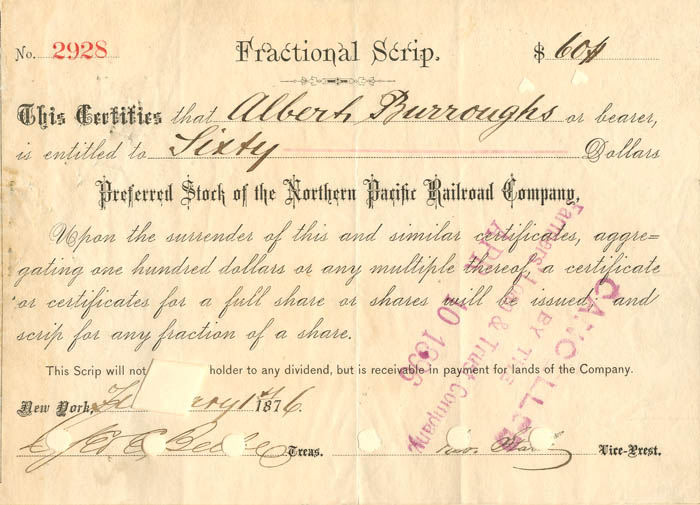 No. 2928 Fractional Scrip. $ 60
This Certifies that Albert Burroughs or bearer,
is entitled to Sixty Dollars
Preferred Stock of the Northern Pacific Railroad Company.
Upon the surrender of this and similar certificates, aggre=
gating one hundred dollars or any multiple thereof, a certificate
or certificates for a full share or shares will be issued, and
scrip for any fraction of a share.
This Scrip will not holder to any dividend, but is receivable in payment for lands of the Company.
New York, 1876.
Treas. Vice-Prest.
CANCELLED
BY THE
Farmers' Loan & Trust Company
APR 10 1896